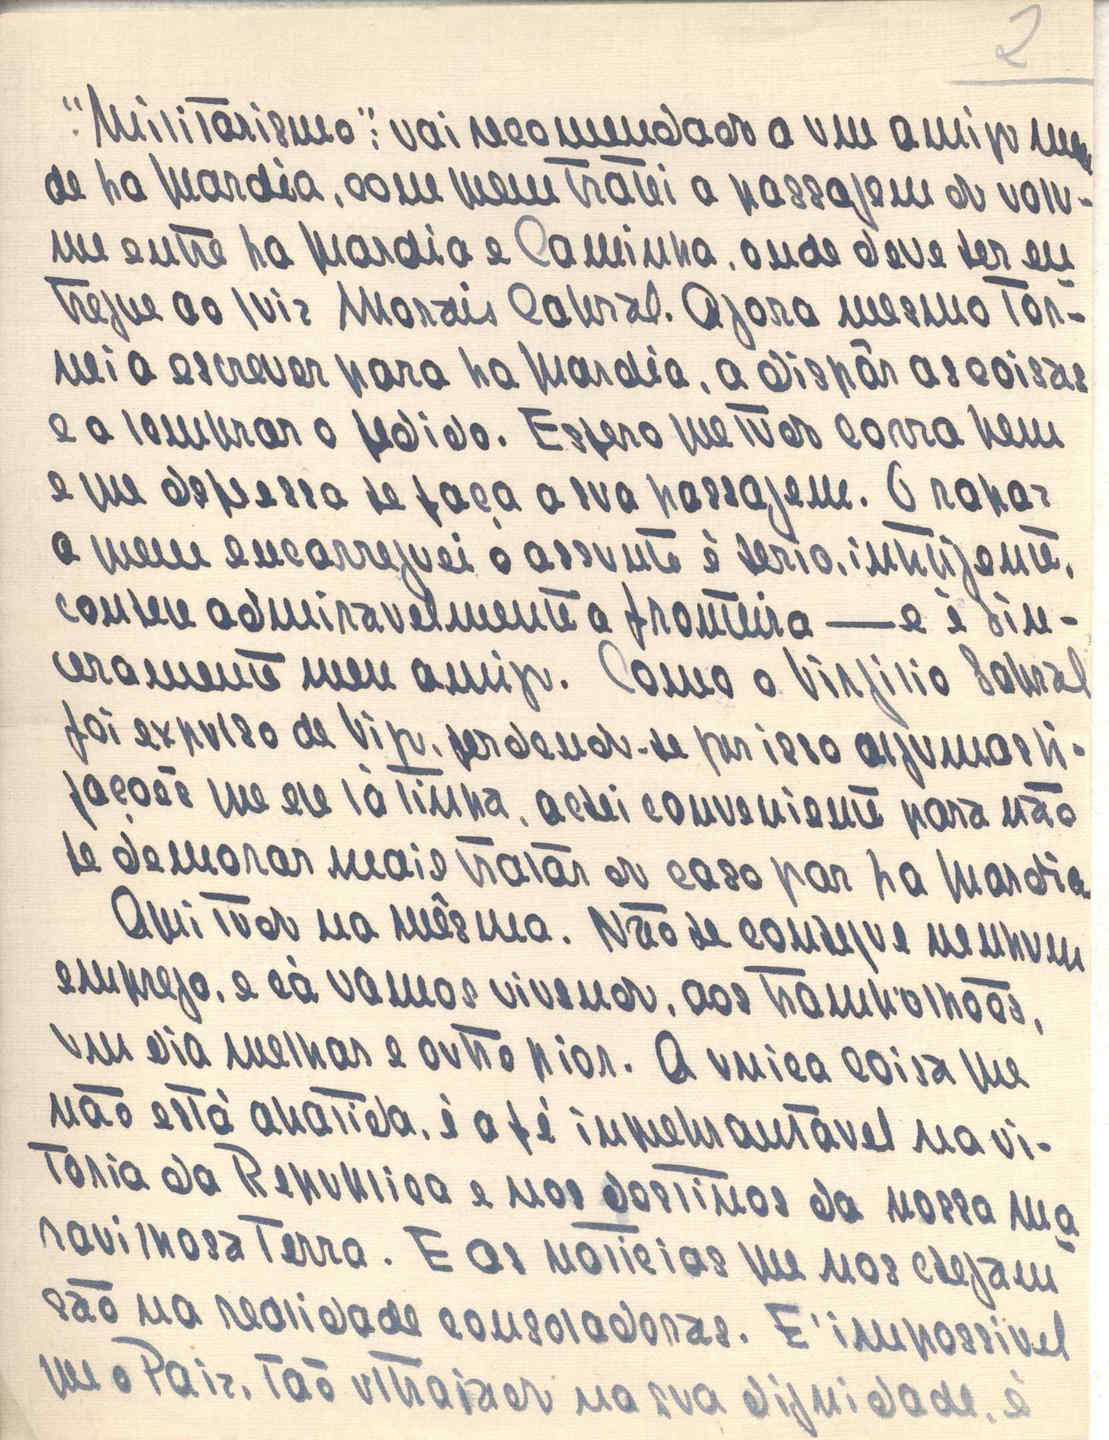 2
"Militarismo": vai recomendado a um amigo meu
de La Guardia, com quem tratei a passagem do volu-
me entre La Guardia e Caminha, onde deve ser en
tregue ao Luiz Morais Cabral. Agora mesmo tor-
nei a escrever para La Guardia, a dispôr as coisas
e a lembrar o pedido. Espero que tudo corra bem
e que depressa se faça a sua passagem. O rapaz
a quem encarreguei o assunto é serio, inteligente,
conhece admiravelmente a fronteira — e é sin-
ceramente meu amigo. Como o Virgilio Sabral
foi expulso de Vigo, perdendo-se por isso algumas li-
gações que ele lá tinha, achei conveniente para não
se demorar mais tratar do caso por La Guardia
Aqui tudo na mêsma. Não se consegue nenhum
emprego, e cá vamos vivendo, aos trambolhões,
um dia melhor e outro pior. A unica coisa que
não está abatida, é a fé inquebrantável na vi-
toria da Republica e nos destinos da nossa ma
ravilhosa Terra. E as noticias que nos chegam
são na realidade consoladoras. E' impossivel
que o Paiz, tão ultrajado na sua dignidade, é